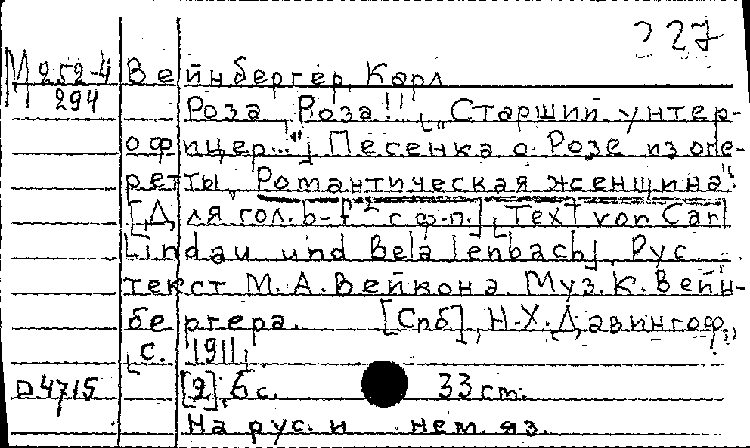 227
М 252-4 Вейнбергер, Карл
294 Роза, Роза!! [„Старший унтер-
офицер..."] Песенка о Розе из опе-
ретты „Романтическая женщина".
[Для гол. b-f² с ф.-п.] [Text von Carl
Lindau und Bela Jenbach]. Рус.
текст М.А. Вейкона. Муз. К. Вейн-
бергера. [Спб], Н.Х. Давингоф,
[с. 1911].
D 4715 [2], 6 с. 33 cm.
На рус. и нем. яз.